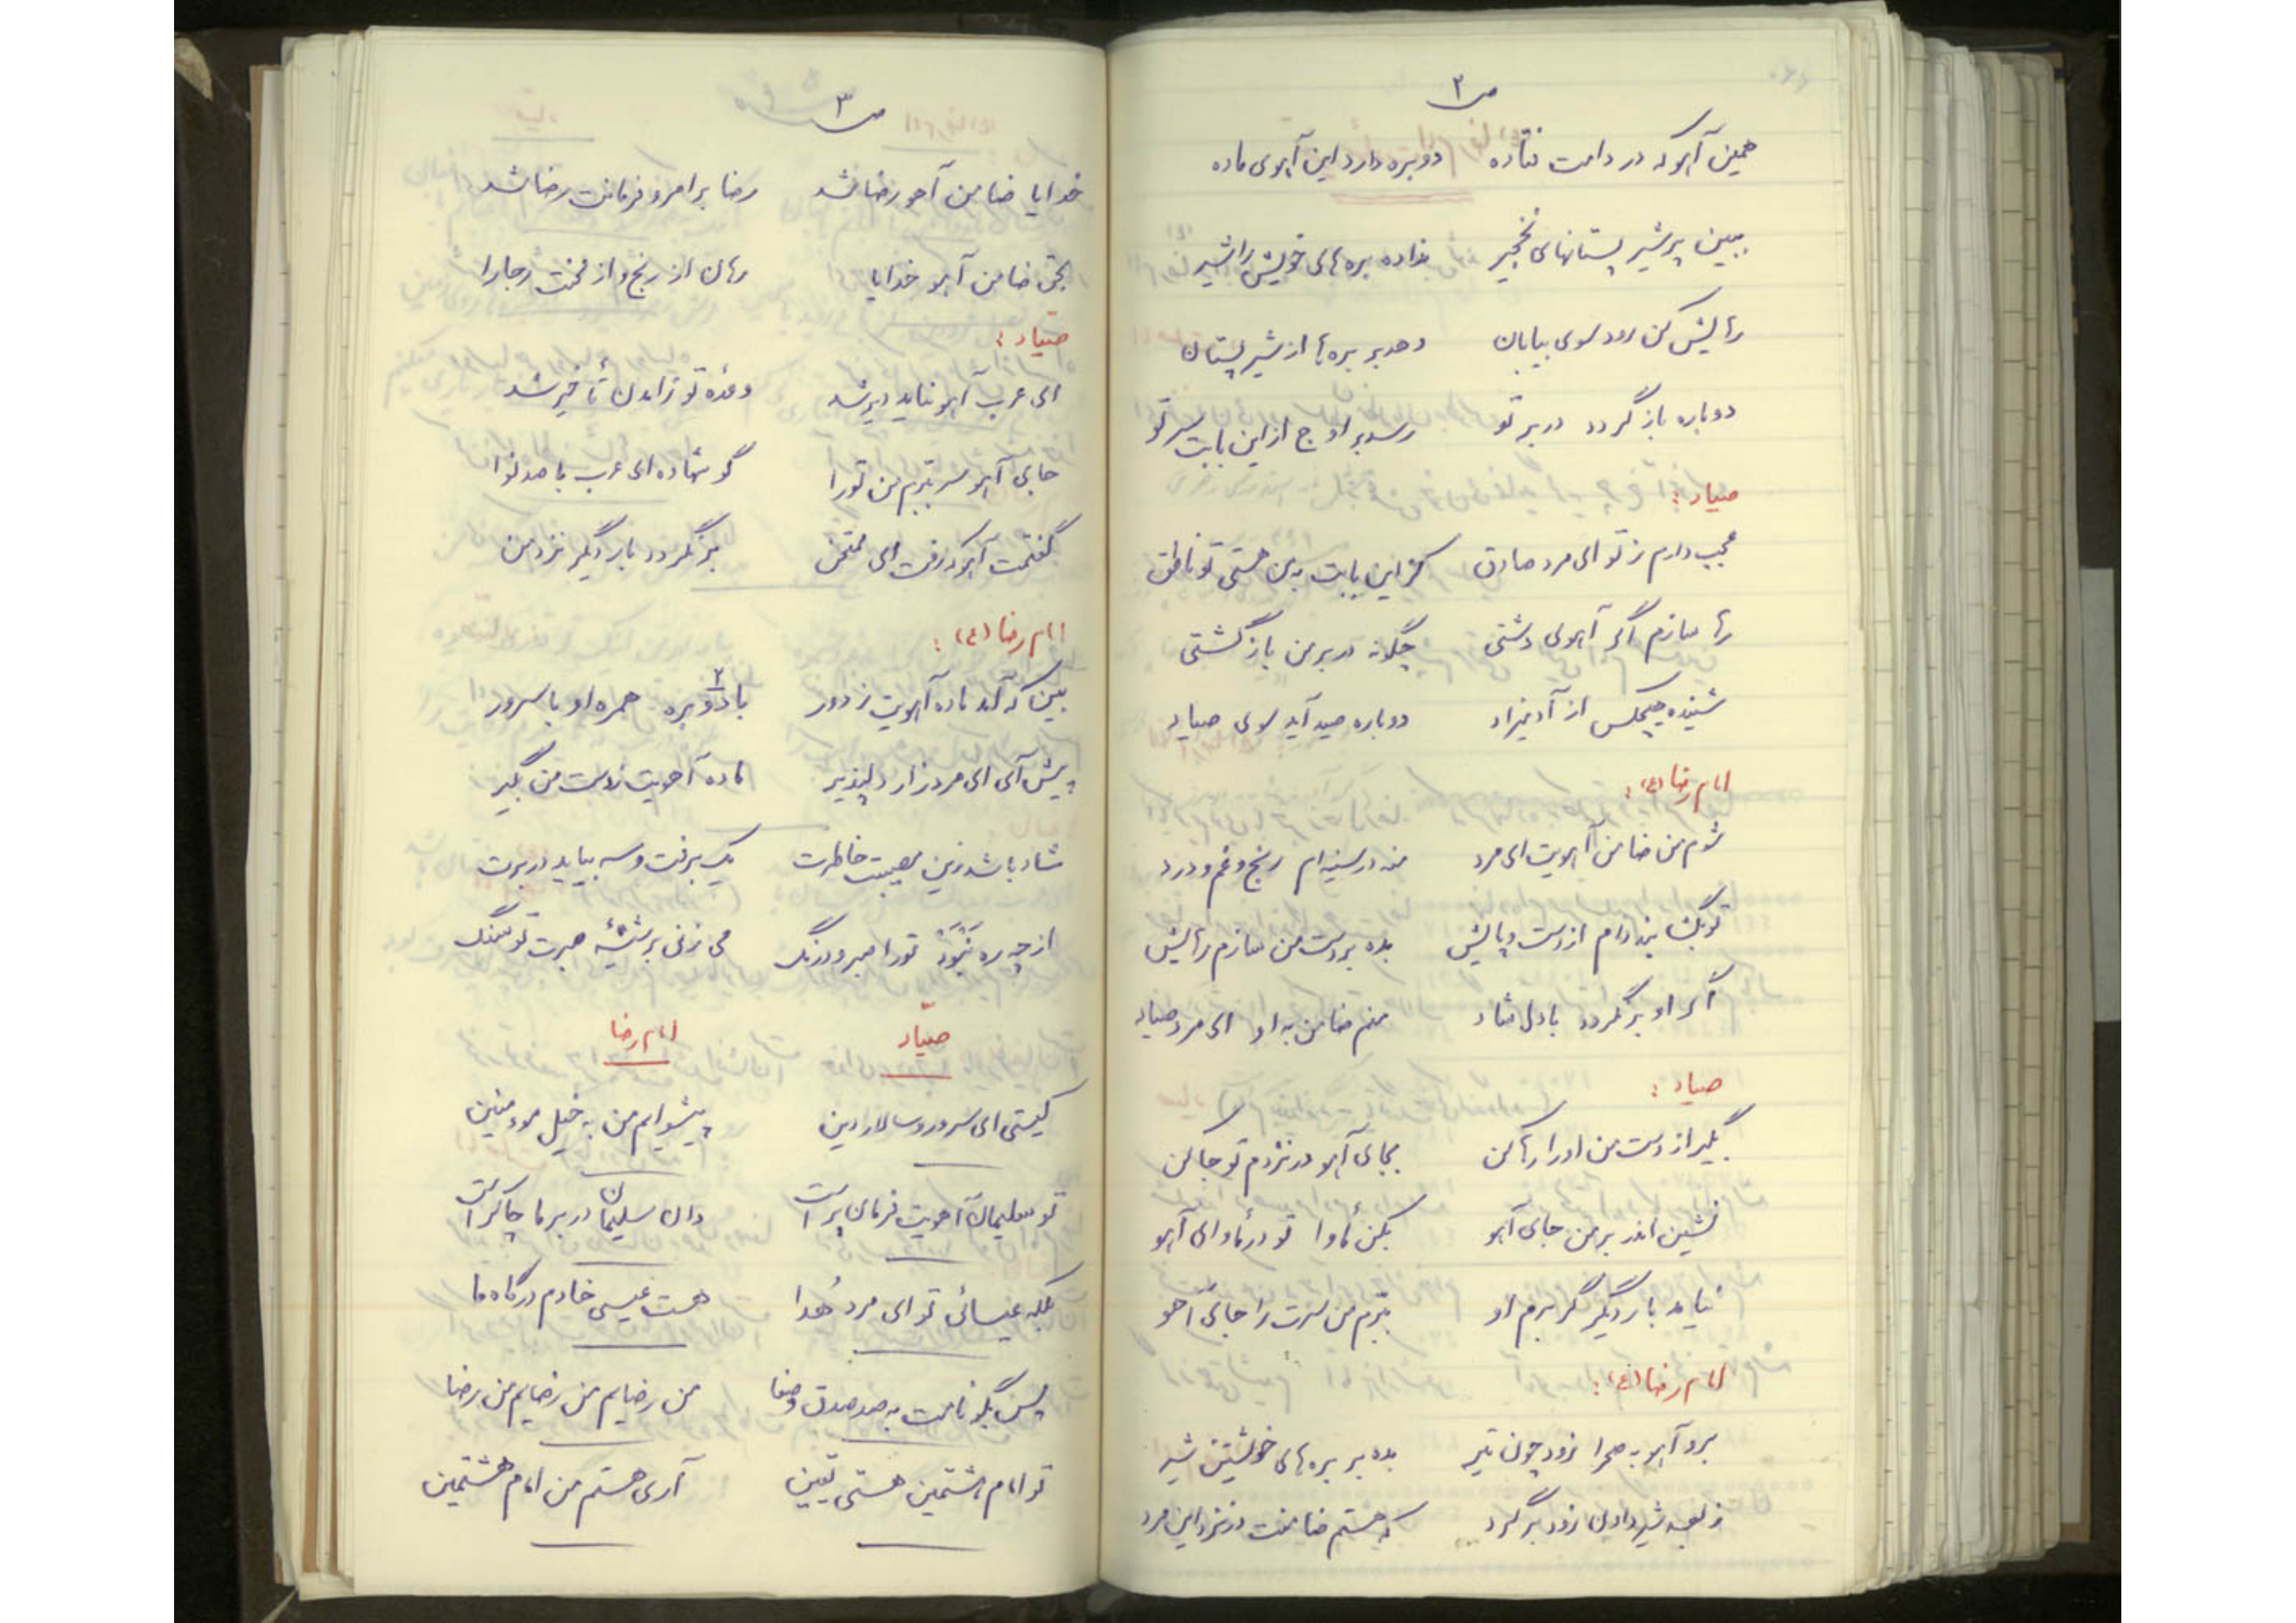 ص ۲
همین آهو که در دامت فتاده دو بره دارد این آهوی ماده
ببین پر شیر پستانهای نخجیر نداده بره های خویش را شیر
رهایش کن رود سوی بیابان دهد بر بره ها از شیر پستان
دوباره باز گردد در بر تو رسد بر اوج از این بابت سر تو
صیاد :
عجب دارم ز تو ای مرد صادق کز این بابت به من هستی تو ناطق
رها سازم اگر آهوی دشتی چگونه در بر من باز گشتی
شنیده هیچکس از آدمیزاد دوباره صید آید سوی صیاد
امام رضا (ع) :
شوم من ضامن آهویت ای مرد منه در سینه ام رنج و غم و درد
تو بگشا بند دام از دست و پایش بده بر دست من سازم رهایش
اگر او برنگردد با دل شاد منم ضامن به او ای مرد صیاد
صیاد :
بگیر از دست من او را رها کن بجای آهو در نزدم تو جا کن
نشین اندر بر من جای آهو بکن مأوا تو در مأوای آهو
نیاید بار دیگر گر برم او ببرم من سرت را جای آهو
امام رضا (ع) :
برو آهو به صحرا زود چون تیر بده بر بره های خویشتن شیر
ز بعد شیر دادن زود برگرد که هستم ضامنت در نزد این مرد
ص ۳
خدایا ضامن آهو رضا شد رضا بر امر و فرمانت رضا شد
بحق ضامن آهو خدایا رهان از رنج و از محنت رجا را
صیاد :
ای عرب آهو نیاید دیر شد وعده تو زامدن تأخیر شد
جای آهو سر ببرم من تو را گو شهاده ای عرب با صد نوا
گفتمت آهو که رفت ای ممتحن برنگردد بار دیگر نزد من
امام رضا (ع) :
بین که آمد ماده آهویت ز دور با دو ۲ بره همره او با سرور
پیش آی ای مرد زار دلپذیر ماده آهویت ز دست من بگیر
شاد باشد زین مصیبت خاطرت یک برفت و سه بیاید در برت
از چه ره نَبْوَدْ تو را صبر و درنگ می زنی بر شیشه صبرت تو سنگ
صیّاد امام رضا
کیستی ای سرور و سالار دین پیشوایم من به خیل مؤمنین
تو سلیمان آهویت فرمان بر است دان سلیمان در بر ما چاکر است
بلکه عیسائی تو ای مرد هُدا هست عیسی خادم درگاه ما
پس بگو نامت به صد صدق و صفا من رضایم من رضایم من رضا
تو امام هشتمین هستی یقین آری هستم من امام هشتمین